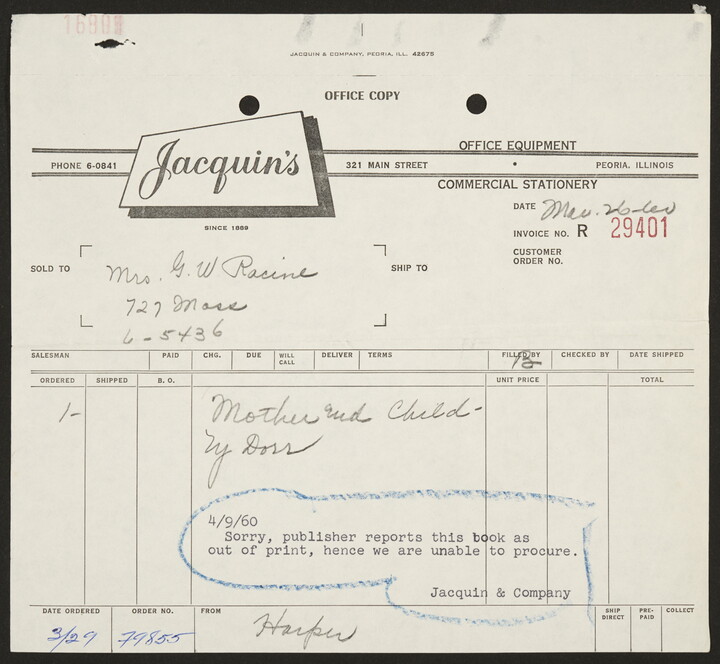 JACQUIN & COMPANY, PEORIA, ILL. 42675
OFFICE COPY
OFFICE EQUIPMENT
PHONE 6-0841
Jacquin's
321 MAIN STREET • PEORIA, ILLINOIS
COMMERCIAL STATIONERY
SINCE 1888
DATE Mar. 26-60
INVOICE NO. R 29401
CUSTOMER
ORDER NO.
SOLD TO
Mrs. G. W Racine
727 Moss
6-5436
SHIP TO
SALESMAN PAID CHG. DUE WILL CALL DELIVER TERMS FILLED BY CHECKED BY DATE SHIPPED
ORDERED SHIPPED B. O. UNIT PRICE TOTAL
1- Mother and Child-
by Dorr
4/9/60
Sorry, publisher reports this book as
out of print, hence we are unable to procure.
Jacquin & Company
DATE ORDERED ORDER NO. FROM SHIP DIRECT PRE-PAID COLLECT
3/29 79855 Harper